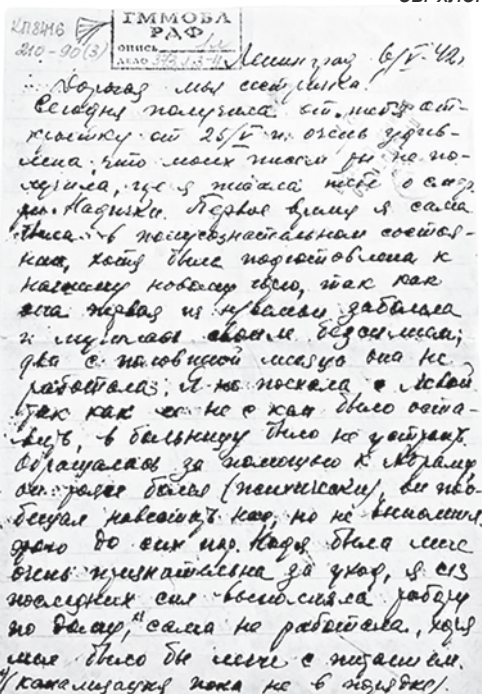 КП8416
210-90(3)
ГММОБЛ
РАФ
ОПИСЬ
ДЕЛО
Ленинград 6/V-42.
Дорогая моя сестричка.
Сегодня получила от тебя от-
крытку от 25/V и очень удив-
лена, что моих писем ты не по-
лучила, где я писала тебе о смер-
ти Надички. Первое время я сама
была в полусознательном состоя-
нии, хотя была подготовлена к
нашему новому горю, так как
она первая из нас заболела
и мучилась своим бессилием;
два с половиной месяца она не
работала. Я не поехала с
так как ее не с кем было оста-
вить, в больницу было не устроить.
Обращалась за помощью к Абраму,
он тоже болел (психически), он поо-
бещал навестить нас, но не выполнил
до сих пор. Надя была мне
очень признательна за уход, я из
последних сил выполняла работу
по дому, сама не работала, хотя
мне было бы легче с питанием.
(канализация пока не в порядке).